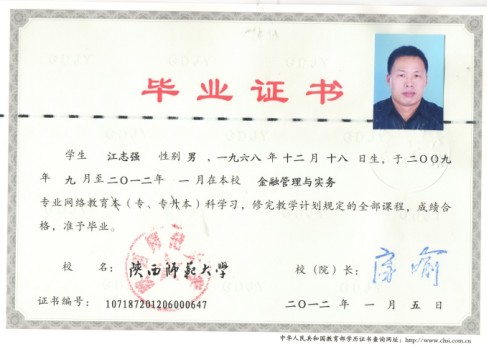 毕业证书
学生 江志强 性别 男 ，一九六八 年 十二 月 十八 日生，于二〇〇九
年 九 月至二〇一二年 一 月在本校 金融管理与实务
专业网络教育本（专、专升本）科学习，修完教学计划规定的全部课程，成绩合
格，准予毕业。
校 名： 陕西师范大学 校（院）长：
证书编号： 107187201206000647 二〇一二年 一 月 五 日
中华人民共和国教育部学历证书查询网址：http://www.chsi.com.cn